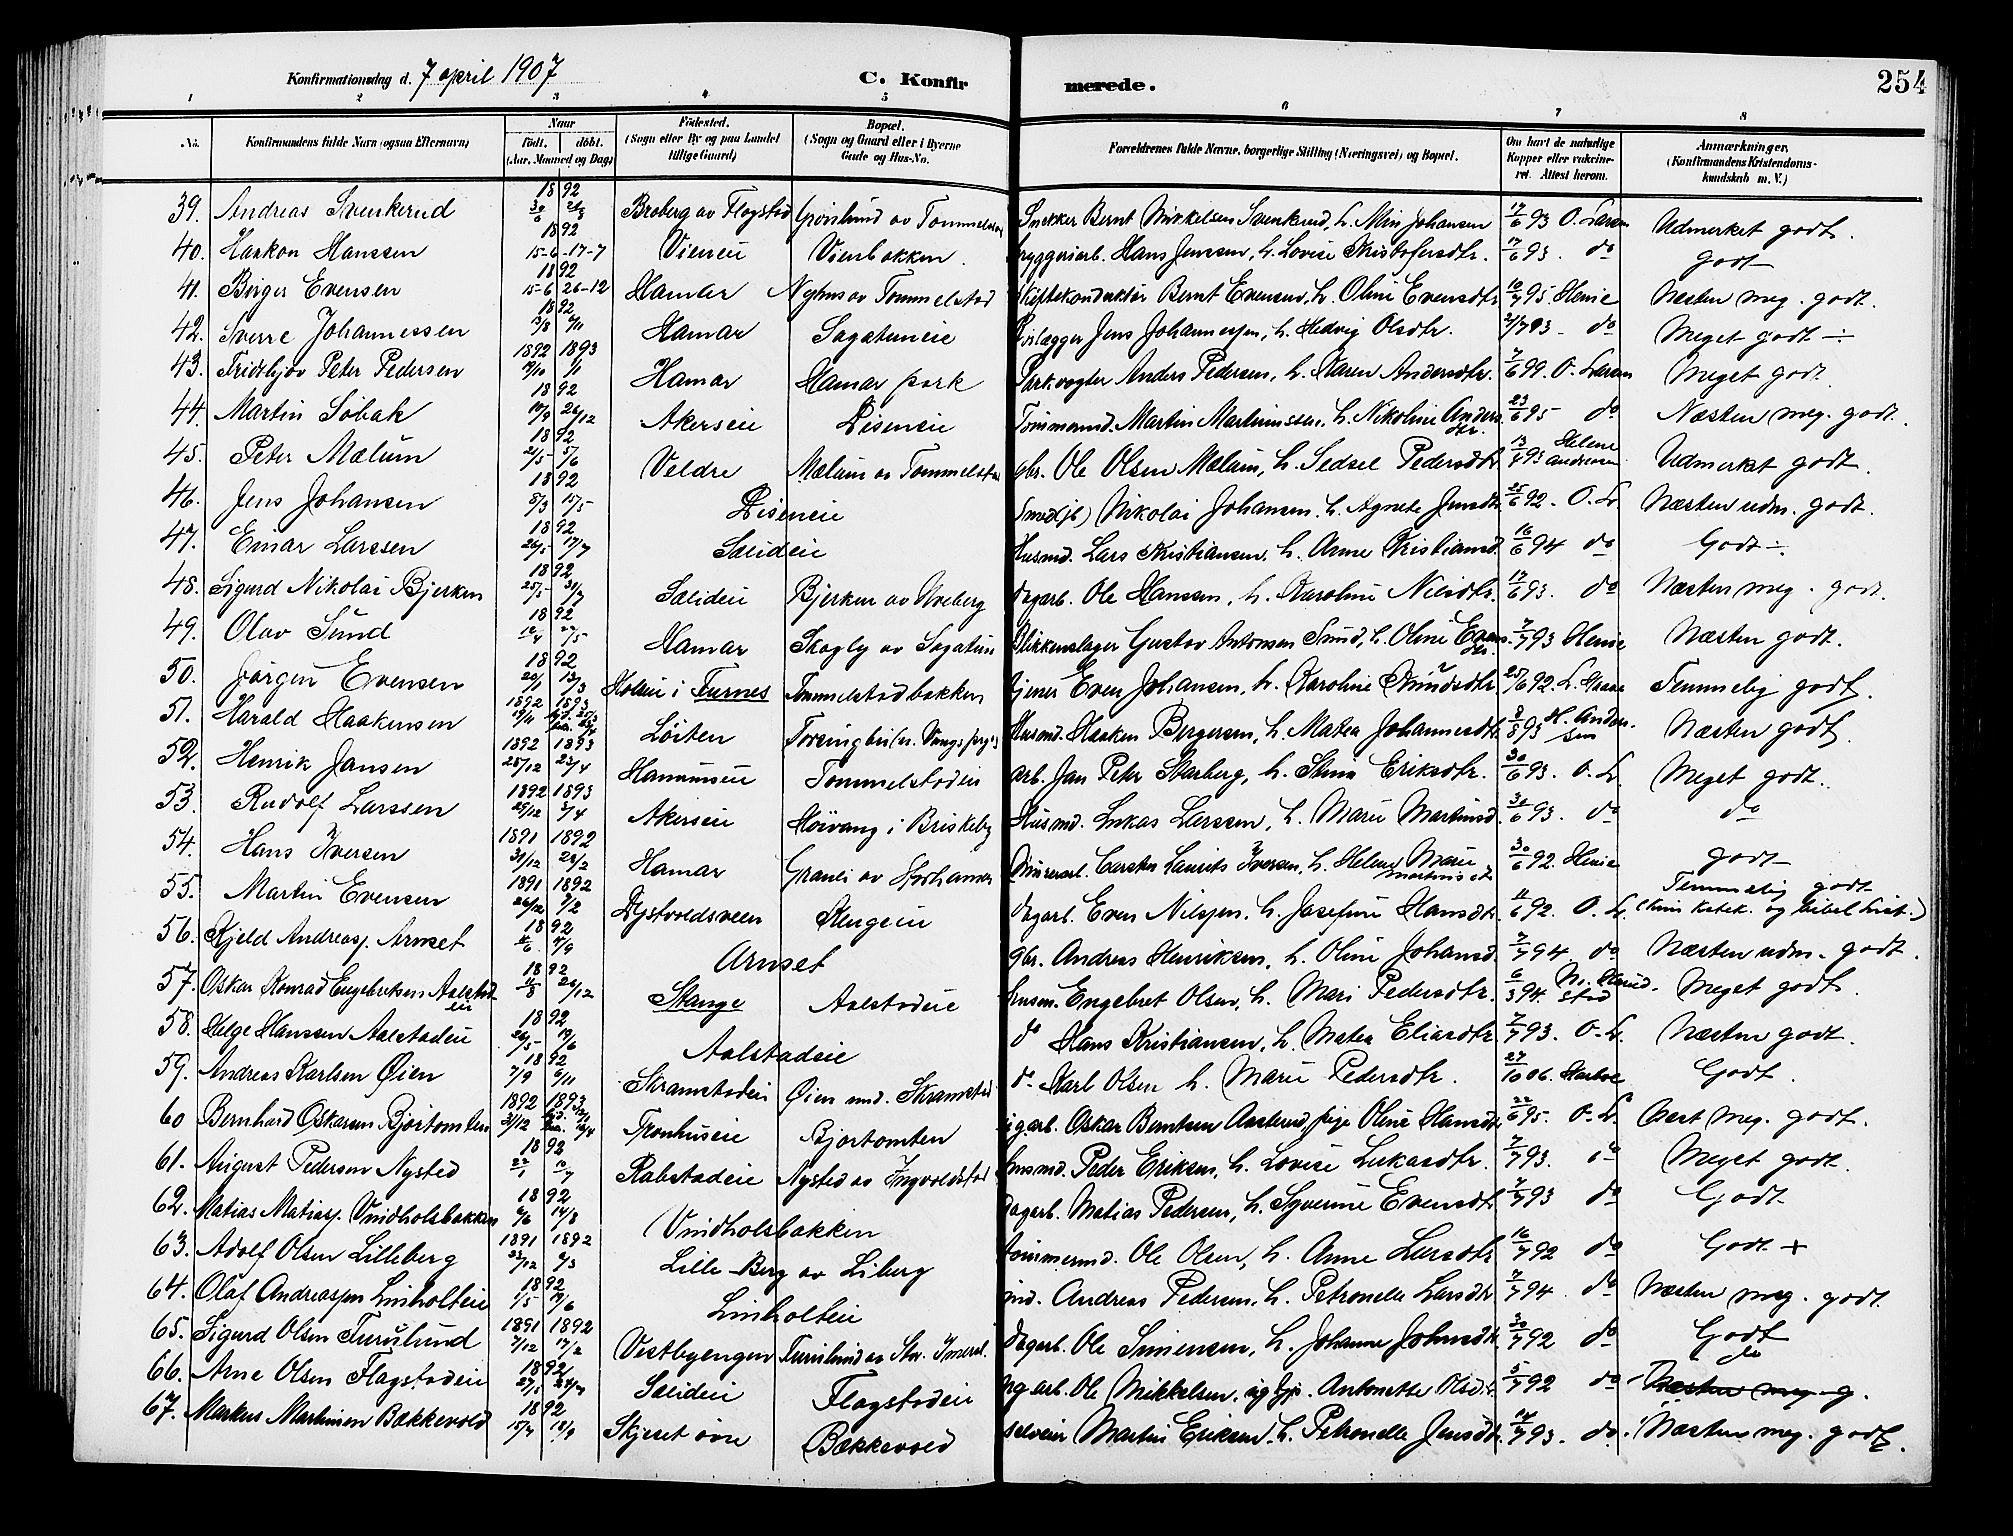 Konfirmationsdag d. 7 april 1907 C. Konfirmerede. 254
1 2 3 4 5 6 7 8
No. Konfirmandens fulde Navn (ogsaa Efternavn) Naar født. døbt. (Aar, Maaned og Dag) Fødested. (Sogn eller By og paa Landet tillige Gaard) Bopæl. (Sogn og Gaard eller i Byerne Gade og Hus-No. Forældrenes fulde Navne, borgerlige Stilling (Næringsvei) og Bopæl. Om havt de naturlige Kopper eller vakcineret. Attest herom. Anmærkninger. (Konfirmandens Kristendomskundskab m. V.)
39. Andreas Svenkerud 1892 Broberg av Flagstad Snekker Bernt Mikkelsen Svenkerud, h. Min Johansen 17/6 93 O. Larsen Udmerket godt.
40. Haakon Hanssen 1892 15-6 17-7 Vieneie Vienbakken. Bryggeriarb. Hans Jenssen, h. Lovise Kristofersdtr. 17/6 93. do godt
41. Birger Evensen 1892 15-6 26-12 Hamar Nyhus av Tommelstad Skiftekonduktør Bernt Evensen, h. Oline Evensdtr 95. Henie Næsten meg. godt.
42. Sverre Johannessen 1892 Hamar Sagatuneie Jens Johannessen, h. Hedvig Olsdtr. 93 do Meget godt ÷
43. Fridthjov Peter Pedersen 1892 1893 Hamar Hamar park Parkvogter Anders Pedersen, h. Karen Andersdtr. 7/6 99. O. Larsen Meget godt.
44. Martin Søbak 1892 26/12 Akerseie Diseneie Tømmermd. Martin Martinussen, h. Nikoline Andersdtr. 23/6 95 do Næsten meg. godt.
45. Peter Mælum 1892 21/5 5/6 Veldre Mælum av Tommelstad gbr. Ole Olsen Mælum, h. Sedsel Pedersdtr 93 Helene Andersen Udmerket godt.
46. Jens Johansen 1892 8/3 15/5 Diseneie Smed Nikolai Johansen. h. Agnete Jensdtr 25/6 92. O. L. Næsten udm. godt.
47. Einar Larssen 1892 26/5 17/7 Sælideie Husmd. Lars Kristiansen, h. Anne Kristiansd. 16/6 94 do Godt ÷
48. Sigurd Nikolai Bjerken 1892 25/5 31/7 Sælideie Bjerken av Hveberg dagarb. Ole Hanssen, h. Karoline Nilsdtr. 17/6 93. do Næsten meg. godt.
49. Olav Sund 1892 Hamar Skogly av Sagatun Blikkenslager Gustav Antonsen Sund, h. Oline Evensdtr. 7/7 93 Henie Næsten godt.
50. Jørgen Evensen 1892 20/1 13/3 Holseie i Furnes Tommelstadbakken tjener Even Johansen, h. Karoline Knudsdtr 25/6 92. Temmelig godt.
51. Harald Haakensen 1892 1893 19/11 Løiten Husmd. Haaken Bergersen, h. Matea Johannesdtr 93 H. Andersen Næsten godt.
52. Henrik Jansen 1892 1893 25/12 23/4 Hammerseie Tommelstadeie arb. Jan Peter Starberg, h. Stina Eriksdtr. 30/6 93. O. L. Meget godt.
53. Rudolf Larssen 1892 1893 25/12 3/4 Akerseie Høivang i Briskeby Husmd. Lukas Larssen, h. Marie Martinsd. 30/6 93. do do
54. Hans Iversen 1891 1892 31/12 28/2 Hamar Carsten Laurits Iversen, h. Helene Marie Martinsdtr 30/6 92. Henie godt
55. Martin Evensen 1891 1892 26/12 7/2 dagarb. Even Nilssen, h. Josefine Hansdtr. 92. O. L. Temmelig godt (kun katek. og bibelhist.)
56. Kjeld Andreass. Arnset 1892 Arnset gbr. Andreas Henriksen, h. Oline Johansd. 7/7 94. do Næsten udm. godt.
57. Oskar Konrad Engebretsen Aalstadeie 1892 26/12 Stange Aalstadeie husm. Engebret Olsen, h. Mari Pedersdtr. 6/3 94. Meget godt.
58. Helge Hanssen Aalstadeie 1892 26/5 19/6 Aalstadeie do Hans Kristiansen, h. Matea Eliasdtr 7/7 93. O. L. Næsten godt.
59. Andreas Karlsen Øien 1892 7/9 6/11 Skramstadeie Øien und. Skramstad do Karl Olsen h. Marie Pedersdtr. 27/10 06. Godt.
60 Bernhard Oskarsen Bjørtomten 1892 1893 31/12 Tronhuseie Bjørtomten Oskar Berntsen Aasterud, pige Oline Hansdtr 22/6 95. O. L. Næst meg. godt.
61. August Pedersen Nysted 1892 Rabstadeie Nysted av Ingvoldstad husmd. Peder Eriksen, h. Lovise Lukasdtr. 7/7 93. do Meget godt.
62. Matias Matiass. Vindholsbakken 1892 14/8 Vindholsbakken dagarb. Matias Pedersen, h. Syverine Evensdtr 7/7 93 do Godt
63. Adolf Olsen Lilleberg 1891 1892 23/12 6/3 Lille-Berg av Liberg tømmermd. Ole Olsen, h. Anne Larsdtr 16/7 92 do Godt +
64. Olaf Andreassen Linholteie 1892 1/5 19/6 Linholteie md. Andreas Pedersen, h. Petronelle Larsdtr 7/7 94. do Næsten meg. godt
65. Sigurd Olsen Furulund 1891 1892 7/12 17/2 Vestbyengen dagarb. Ole Simensen, h. Johanne Johnsdtr 30/7 92 do Godt
66. Arne Olsen Flagstadeie 1892 27/5 24/7 Sælideie Flagstadeie arb. Ole Mikkelsen, Antonette Olsdtr. 5/7 92 do Næsten meg. g. do
67. Markus Martinsen Bækkevold 1892 15/7 18/9 Skjeset øvre Bækkevold selveier Martin Eriksen, h. Petronelle Jensdtr. 14/7 93. do. Næsten meg. godt.